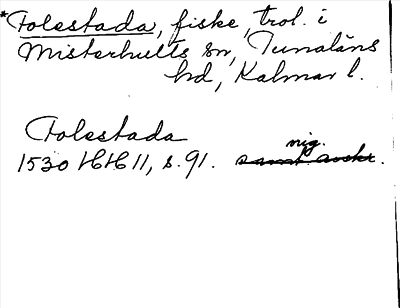 *Tolestada, fiske, trol. i
Misterhults sn, Tunaläns
hd, Kalmar l.
Tolestada
nig.
1530 HH 11, s. 91. samt. avskr.